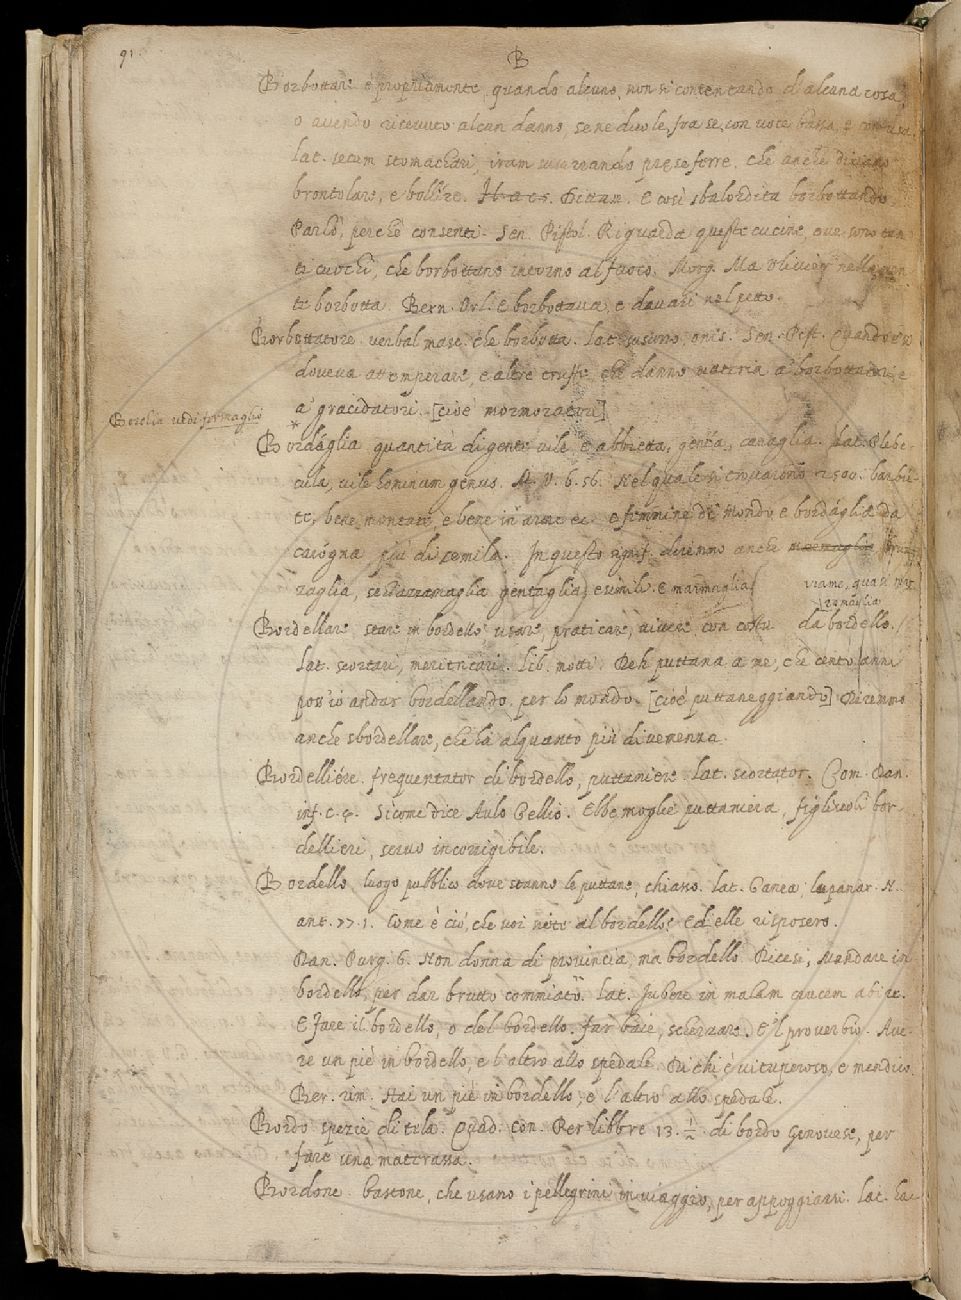 91.
B
Borbottare è propriamente, quando alcuno, non si contentando d'alcuna cosa,
o avendo ricevuto alcun danno, se ne duole, fra se, con voce bassa, e confusa.
lat. secum stomachari, iram susurrando præseferre. che anche diciamo
brontolare, e bollire. Fittam. E così sbalordita borbottando
Parlò, perchè consenti. Sen. Pistol. Riguarda queste cucine, ove sono tan-
ti cuochi, che borbottano intorno al fuoco. Morg. Ma Ulivier nella
te borbotta. Bern. Orl. E borbottava, e davasi nel petto.
Borbottatore. verbal masc. che borbotta. Lat. susurro, onis. Sen. Pist. Quando e' si
doveva attemperare, e altre truffe, che danno materia a' borbottatori, e
a' gracidatori. [cioè mormoratori]
Borchia vedi fermaglio
*
Bordáglia quantità di gente vile, e abbietta, genta, canaglia. Lat. Plebe-
cula, vile hominum genus. M. V. 6. 56. Nel quale si trovarono 2500. barbu-
te, bene montate, e bene in arme ec. e femmine di mondo e bordáglia da
carógna più di semila. In questo signif. diremmo anche marmaglia, bruz-
zaglia, gentaglia, e simili. E marmaglia
viame, quasi
Bordellare stare in bordello, usare, praticare, vivere con costu da bordello.
Lat. scortari, meritricari. Lib. motti. Deh puttana a me, che cento anni
poss'io andar bordellando per lo mondo. [cioè puttaneggiando] Diremmo
anche sbordellare, che ha alquanto più di veemenza.
Bordelliére. frequentator di bordello, puttaniere. Lat. scortator. Com. Dan.
inf. c. 4. Sicome dice Aulo Gellio. Ebbe moglie puttaniera, figliuoli bor-
dellieri, servo incorrigibile.
Bordello, luogo pubblico dove stanno le puttane, chiasso. Lat. Ganea, lupanar. N.
ant. 77. 1. Come è ciò, che voi siete al bordello? Ed elle risposero.
Dan. Purg. 6. Non donna di provincia, ma bordello. Dicesi, Mandare in
bordello, per dar brutto commiato. Lat. Jubere in malam crucem abire.
E fare il bordello, o del bordello. far baie, scherzare. E'l proverbio. Ave-
re un piè in bordello, e l'altro allo spedale. Di chi è vituperoso, e mendico.
Ber. rim. Hai un piè in bordello, e l'altro allo spedale.
Bordo spezie di tela. Quad. Con. Per libbre 13. ½ di bordo Genovese, per
fare una matrassa.
Bordone. bastone, che usano i pellegrini in viaggio, per appoggiarsi. Lat. ba-